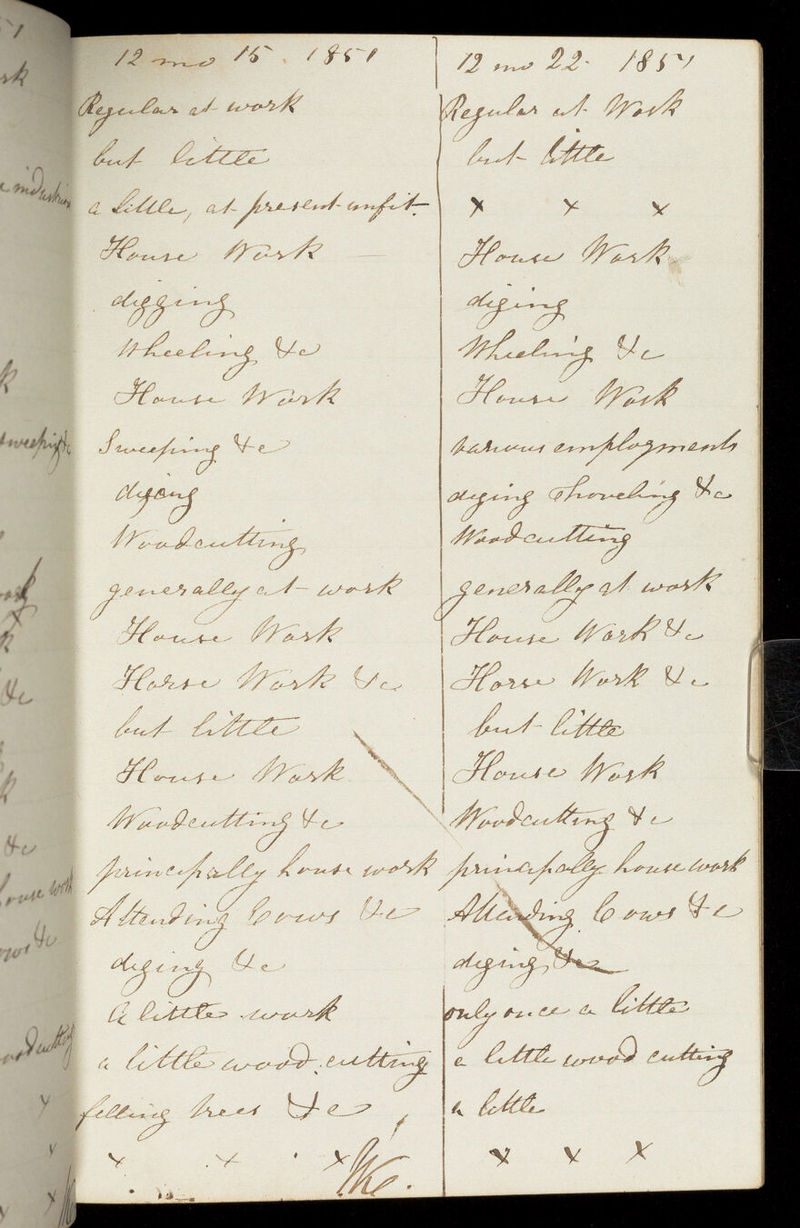 12 mo 15. 1851
Regular at work
but little
a little, at present unfit.
House Work
digging
Wheeling &c
House Work
Sweeping &c
diging
Woodcutting
generally at work
House Work
Horse Work &c
but little
House Work
Woodcutting &c
principally house work
Attending Cows &c
diging &c
A little work
a little wood cutting
felling trees &c
x x x
12 mo 22. 1851
Regular at Work
but little
x x x
House Work
diging
Wheeling &c
House Work
various employments
diging Shoveling &c
Woodcutting
generally at work
House Work &c
Horse Work &c
but little
House Work
Woodcutting &c
principally house work
Attending Cows &c
diging &c
only once a little
a little wood cutting
a little
x x x